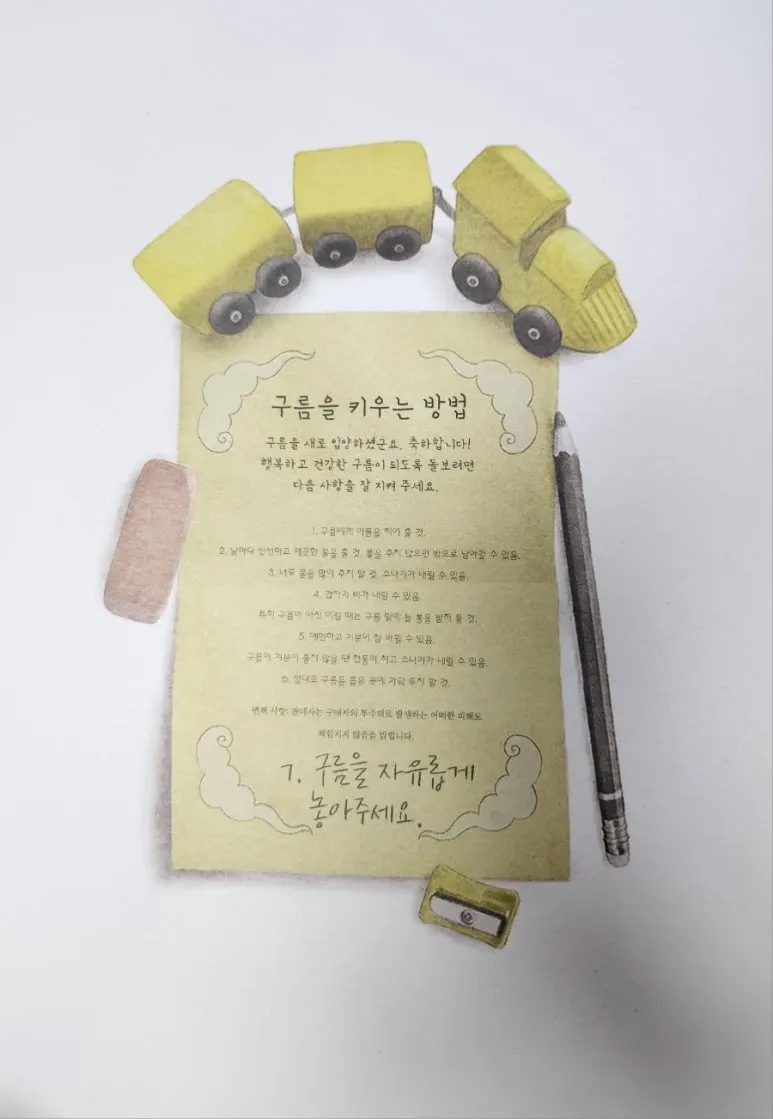 구름을 키우는 방법
구름을 새로 입양하셨군요. 축하합니다!
행복하고 건강한 구름이 되도록 돌보려면
다음 사항을 잘 지켜 주세요.
1. 구름에게 이름을 지어 줄 것.
2. 날마다 신선하고 깨끗한 물을 줄 것. 물을 주지 않으면 밖으로 날아갈 수 있음.
3. 너무 물을 많이 주지 말 것. 소나기가 내릴 수 있음.
4. 갑자기 비가 내릴 수 있음.
특히 구름이 아직 어릴 때는 구름 밑에 늘 통을 받쳐 둘 것.
5. 예민하고 기분이 잘 바뀔 수 있음.
구름이 기분이 좋지 않을 땐 천둥이 치고 소나기가 내릴 수 있음.
6. 절대로 구름을 좁은 곳에 가둬 두지 말 것.
면책 사항: 판매자는 구매자의 부주의로 발생하는 어떠한 피해도
책임지지 않음을 밝힙니다.
7. 구름을 자유롭게
놓아주세요.